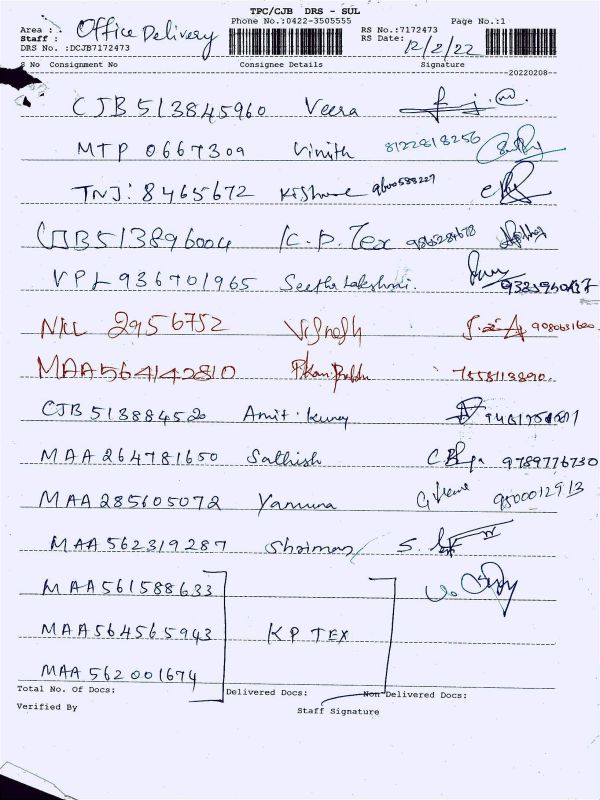 TPC/CJB DRS - SUL
Phone No.:0422-3505555 Page No.:1
Area : Office Delivery RS No.:7172473
Staff : RS Date: 12/2/22
DRS No. :DCJB7172473
S No Consignment No Consignee Details Signature
20220208
CJB 513845960 Veera
MTP 0667309 Vinith 8122818256
TNJ: 8465672 Kishore 9600588227
CJB513896004 K.P. Tex
VPL 936701965 Seetha Lakshmi.
NKL 2956752 Vignesh
MAA564142810
CJB 513884520 Amit.
MAA 264781650 Sathish 9789776730
MAA 285605072 Yamuna 9500012913
MAA 562319287
MAA561588633
MAA564565943 KP TEX
MAA 562001674
Total No. Of Docs: Delivered Docs: Non Delivered Docs:
Verified By Staff Signature